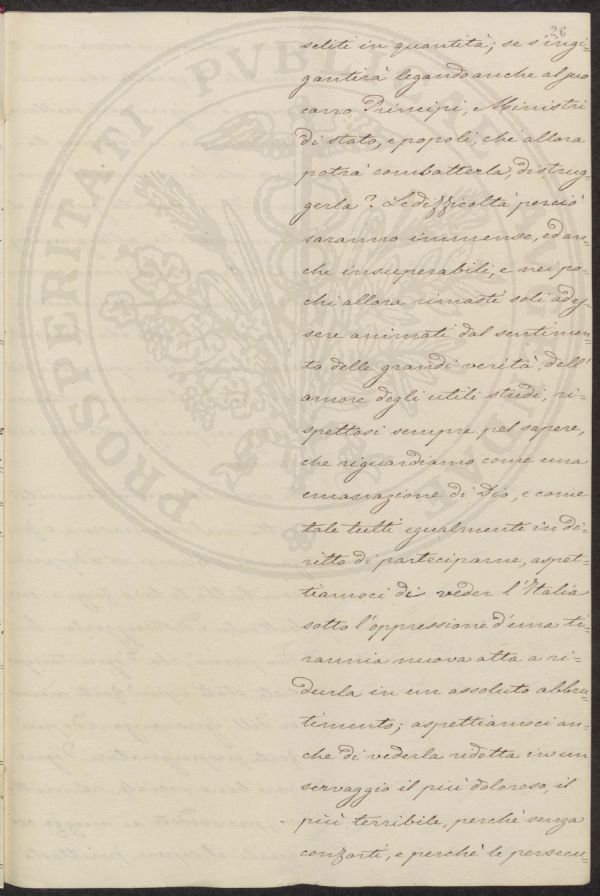 26
seliti in quantità; se s'ingi-
gantirà legando anche al suo
carro Principi, Ministri
di stato, e popoli, chi allora
potrà combatterla, distrug-
gerla? Le difficoltà perciò
saranno immense, ed an-
che insuperabili, e nei po-
chi allora rimasti soli ad es-
sere animati dal sentimen-
to delle grandi verità, dell'
amore degli utili studi, ri-
spettosi sempre pel sapere,
che riguardiamo come una
emanazione di Dio, e come
tale tutti egualmente in di-
ritto di parteciparne, aspet-
tiamoci di veder l'Italia
sotto l'oppressione d'una ti-
rannia nuova atta a ri-
durla in un assoluto abbru-
timento; aspettiamoci an-
che di vederla ridotta in un
servaggio il più doloroso, il
più terribile, perchè senza
conforti, e perchè le persecu-
PROSPERITATI PVBLICAE